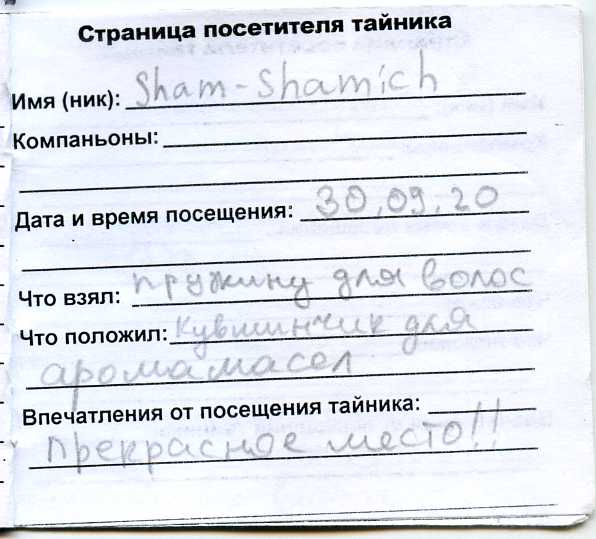 Страница посетителя тайника
Имя (ник): Sham-Shamich
Компаньоны:
Дата и время посещения: 30.09.20
Что взял: пружину для волос
Что положил: Кувшинчик для
аромамасел
Впечатления от посещения тайника:
Прекрасное место!!